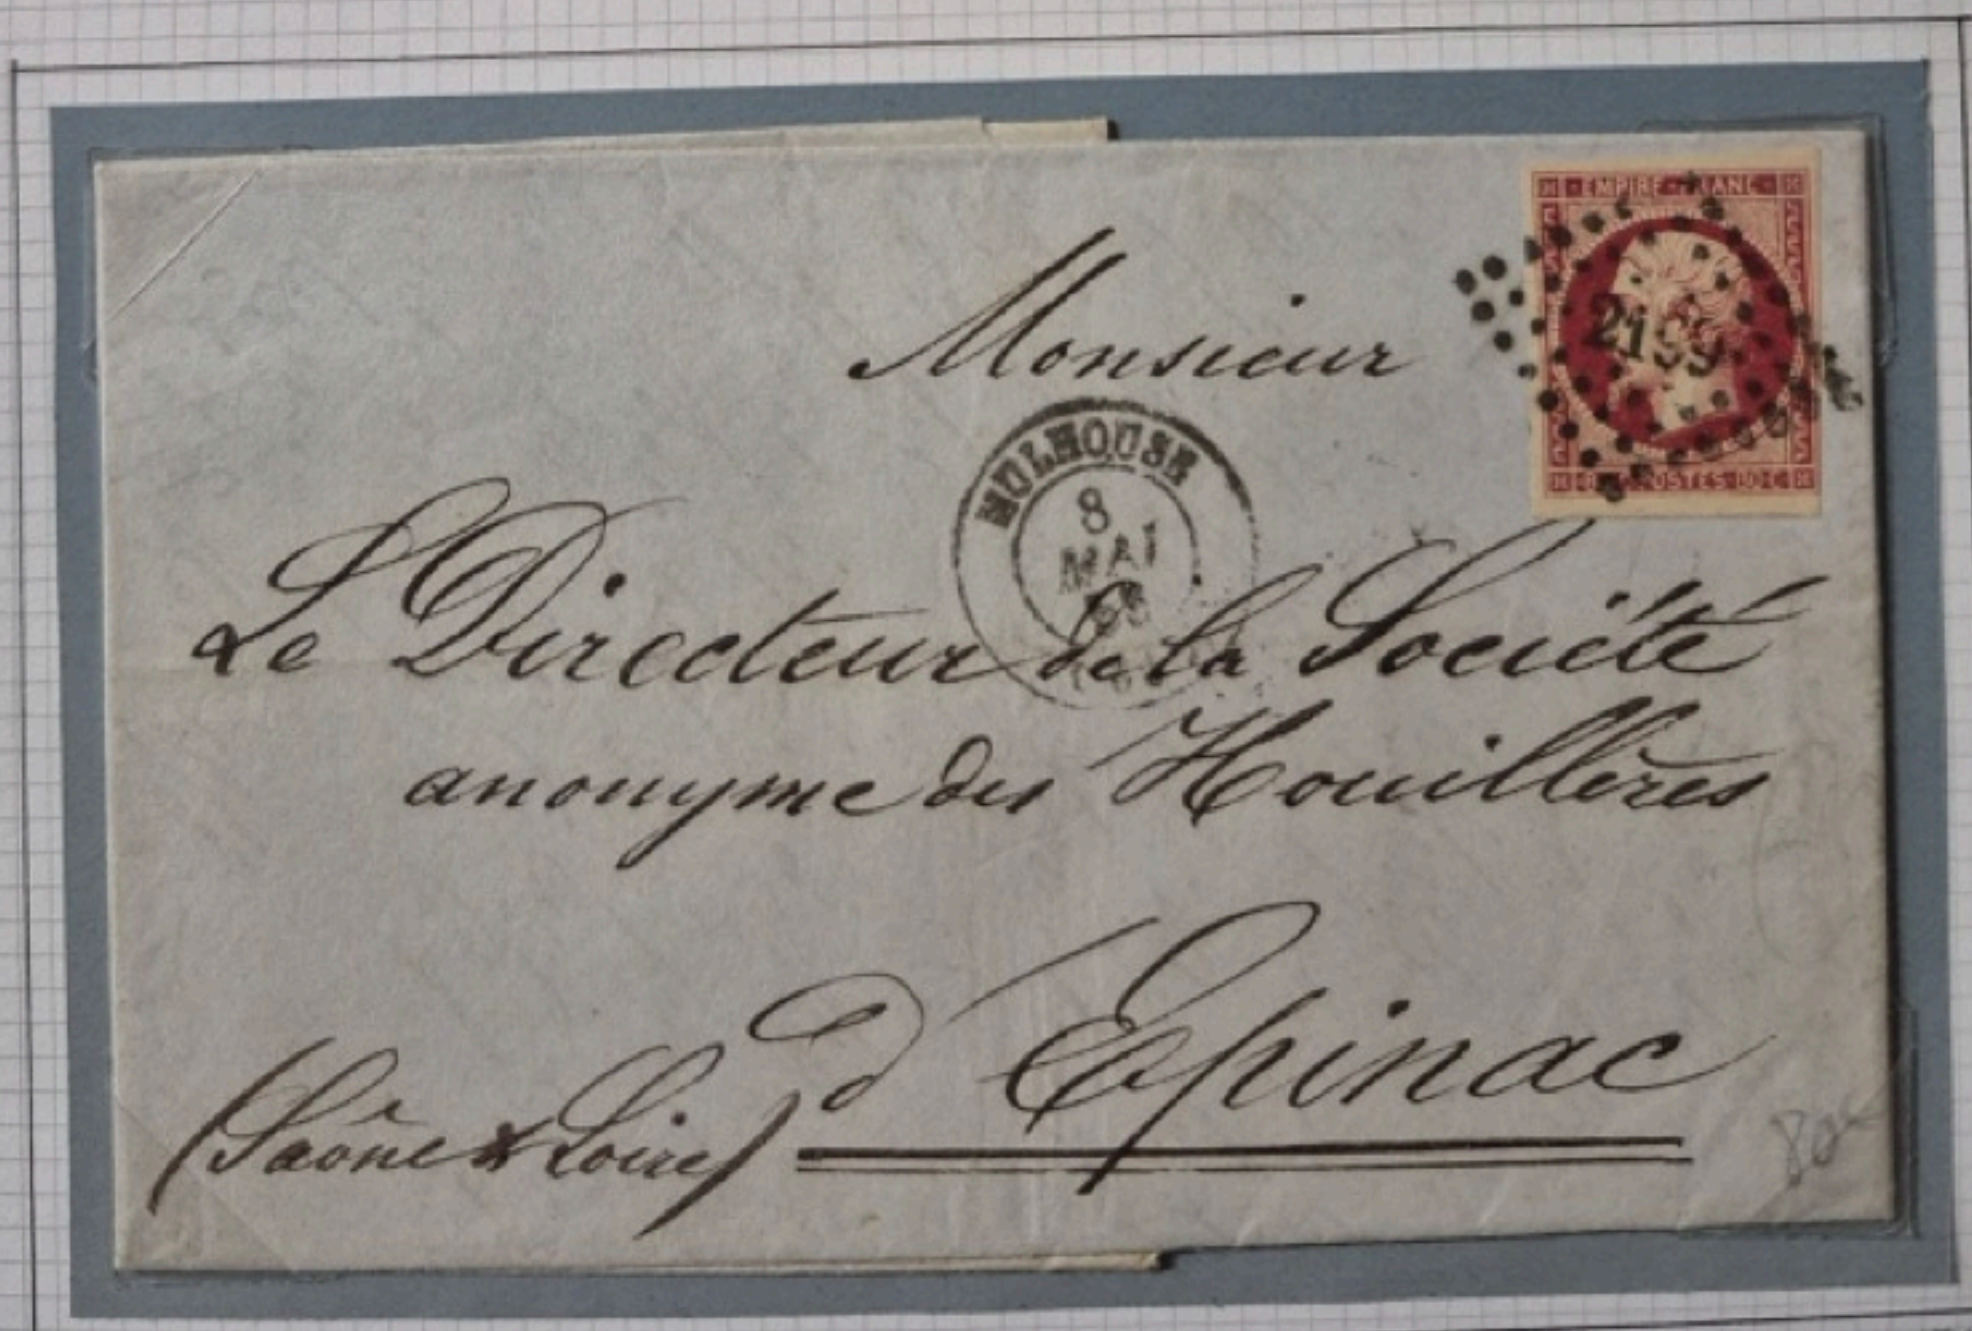 EMPIRE FRANC
2199
POSTES 80 C
Monsieur
MULHOUSE
8
MAI
Le Directeur de la Société
anonyme des Houillères
d'Epinac
(Saône & Loire)
80